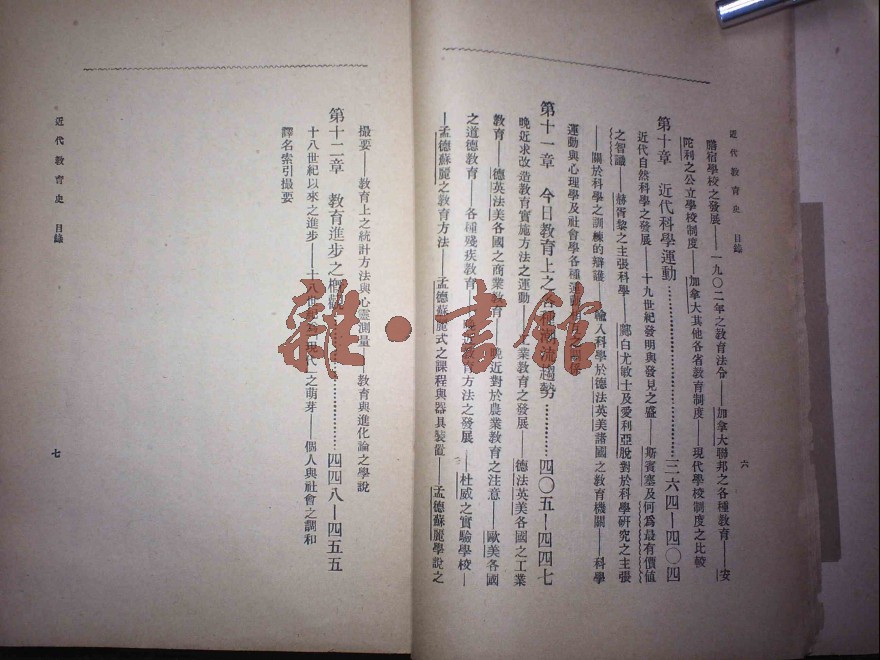 近代教育史 目錄
六
膳宿學校之發展——一九〇二年之教育法令——加拿大聯邦之各種教育——安
陀利之公立學校制度——加拿大其他各省教育制度——現代學校制度之比較
第十章 近代科學運動…………三六四—四〇四
近代自然科學之發展——十九世紀發明與發見之盛——斯賓塞及何爲最有價値
之智識——赫胥黎之主張科學——鄒白尤敏士及愛利亞脫對於科學硏究之主張
——關於科學之訓練的辯護——輸入科學於德法英美諸國之教育機關——科學
運動與心理學及社會學各種運動
第十一章 今日教育上之各種潮流趨勢…………四〇五—四四七
晚近求改造教育實施方法之運動——工業教育之發展——德法英美各國之工業
教育——德英法美各國之商業教育——晚近對於農業教育之注意——歐美各國
之道德教育——各種殘疾教育——晚近教育方法之發展——杜威之實驗學校—
—孟德蘇麗之教育方法——孟德蘇麗式之課程與器具裝置——孟德蘇麗學說之
撮要——教育上之統計方法與心靈測量——教育與進化論之學說
第十二章 教育進步之槪觀…………四四八—四五五
十八世紀以來之進步——十八世紀爲「現代」之萌芽——個人與社會之調和
譯名索引撮要
近代教育史 目錄
七
雜·書館